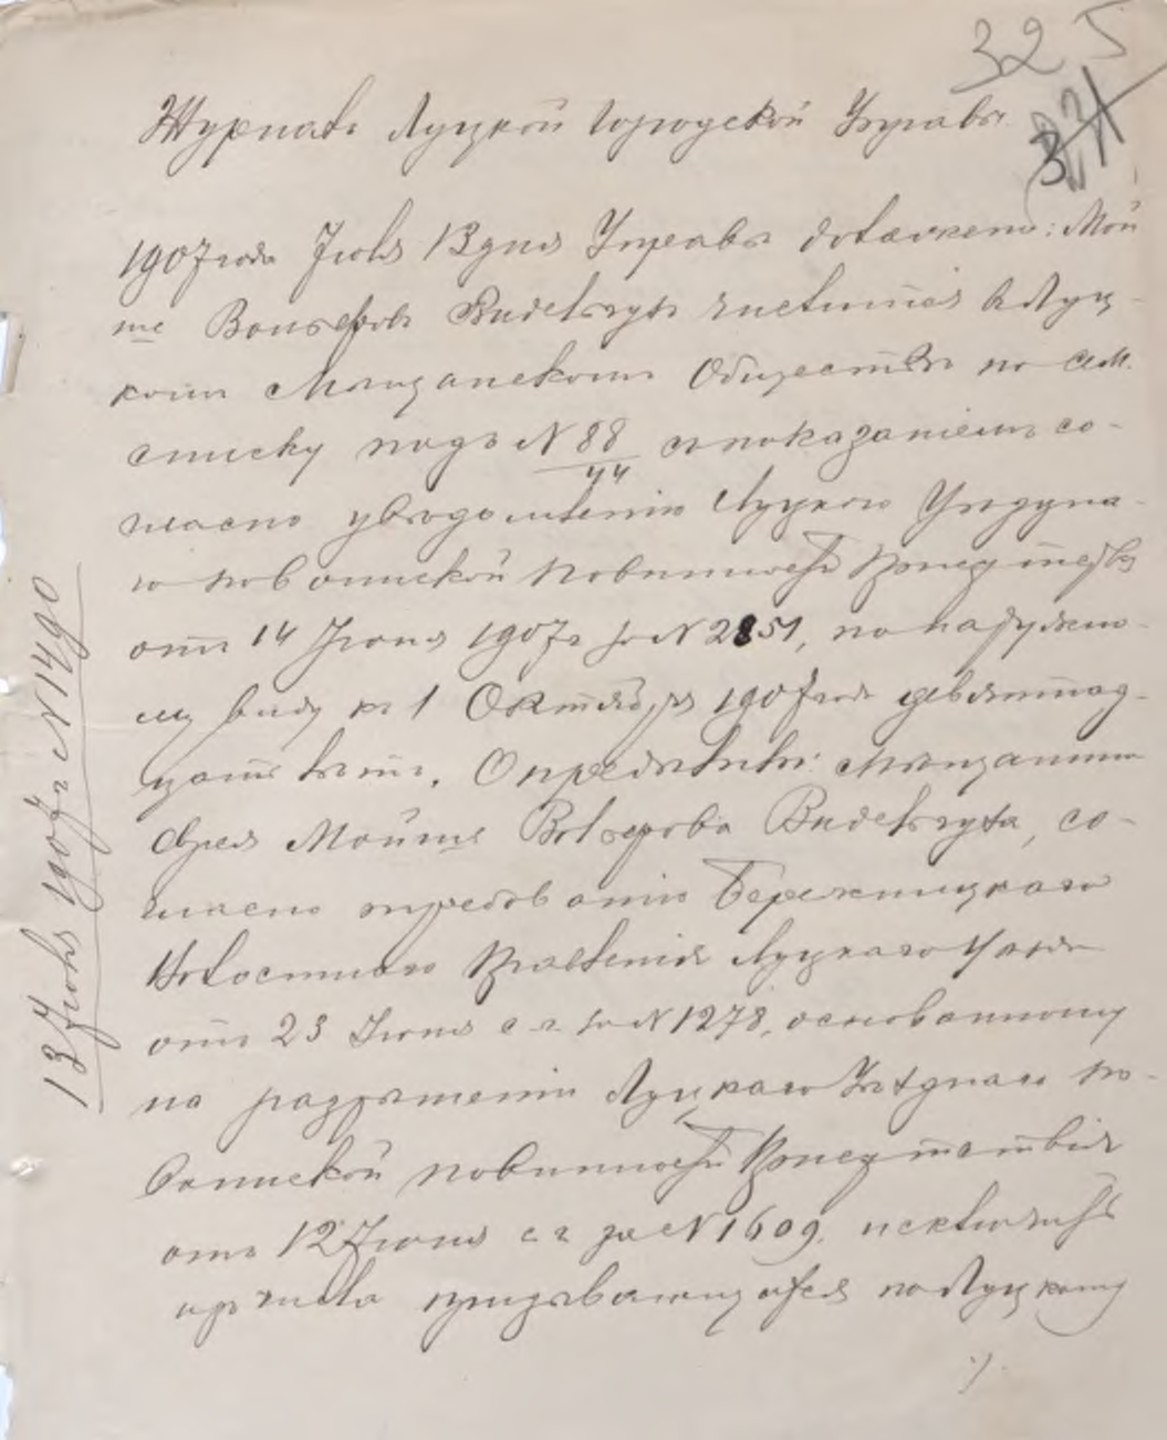 325
331
Журналъ Луцкой Городской Управы
1907 года Іюля 13 дня Управа доложено: Мой
ше Вольфовъ числится въ Луц
комъ Мѣщанскомъ Обществѣ по сем.
списку подъ N 88/44 съ показаніемъ со-
гласно увѣдомленію Луцкого Уѣздна
го по воинской повинности Присутствія
отъ 14 Іюня 1907 г за N 2851, по наружно-
му виду къ 1 Октября 1907 года девятнад-
цать лѣтъ. Опредѣлили: Мѣщанина
еврея Мойше со-
гласно требованію Бережницкаго
Волостного Правленія Луцкаго уѣзда
отъ 23 Іюня с г за N 1278, основанному
на разрѣшеніи Луцкаго Уѣзднаго по
воинской повинности Присутствія
отъ 12 Іюня с г за N 1609, исключить
изъ числа призывающихся по Луцкому
./.
13 Іюля 1907 г N 1490